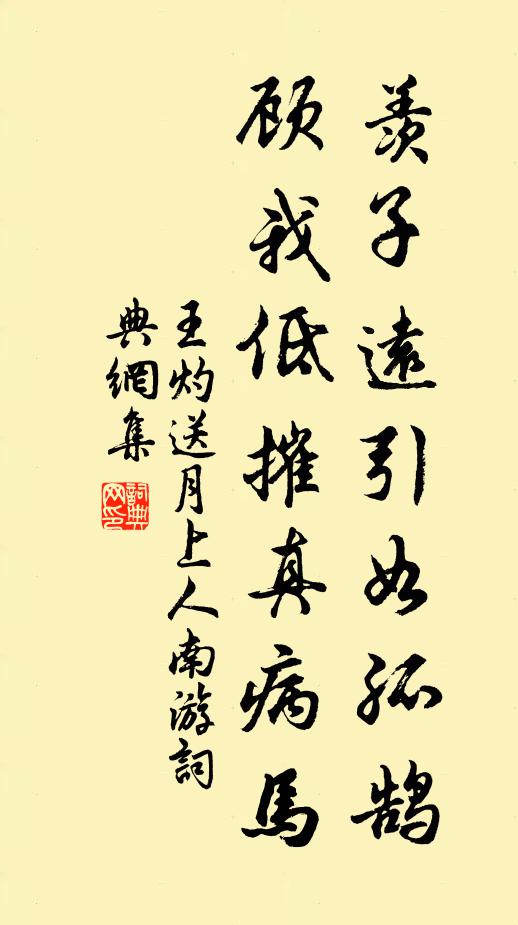 羨子遠引如孤鵠
顾我低摧真病馬
王灼送月上人南游詞
典網集
詞典网印